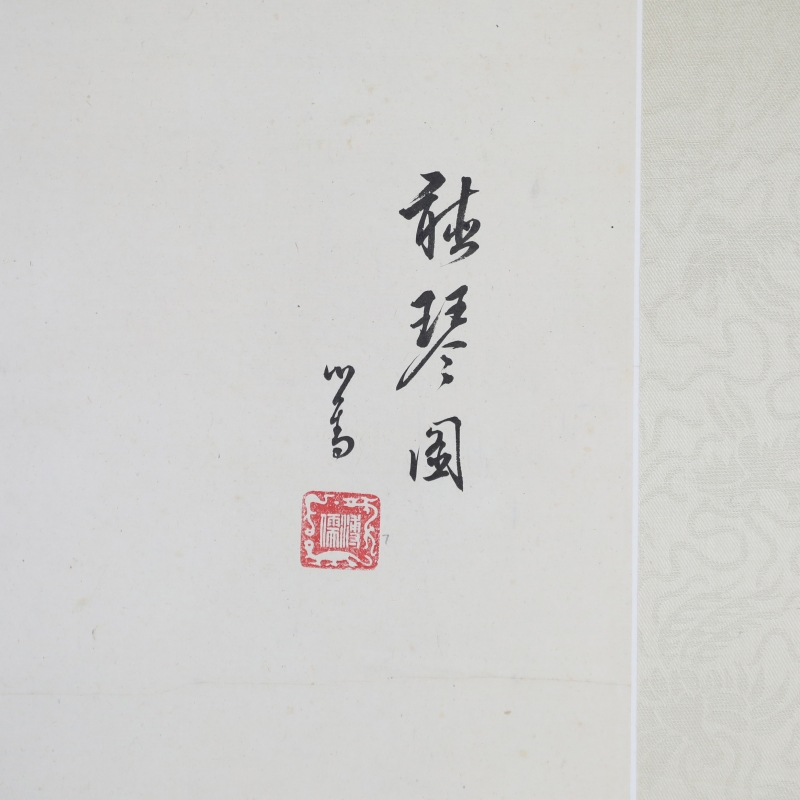 聴琴圖
心畬
溥儒